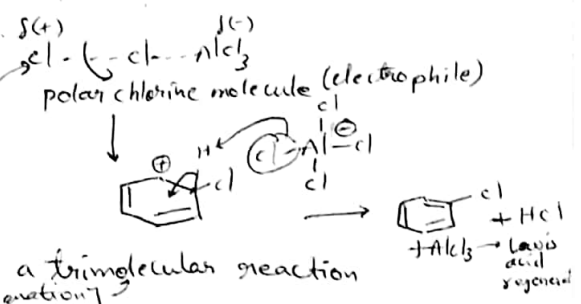 δ(+) δ(-)
Cl - Cl --- AlCl3
polar chlorine molecule (electrophile)
Cl
H Cl - Al - Cl
⊕ ⊖
Cl
Cl
Cl
+ HCl
+ AlCl3 → Lewis
acid
regenerat
a trimolecular reaction